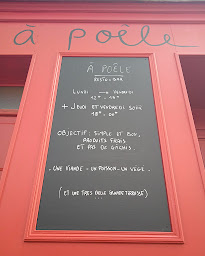 à poêle
À POÊLE
RESTO • BAR
LUNDI → VENDREDI
12H - 15H
+ JEUDI ET VENDREDI SOIR
18H - 00H
OBJECTIF : SIMPLE ET BON,
PRODUITS FRAIS
ET PAS DE GÂCHIS.
- UNE VIANDE - UN POISSON - UN VÉGÉ -
(ET UNE TRÈS BELLE GRANDE TERRASSE)